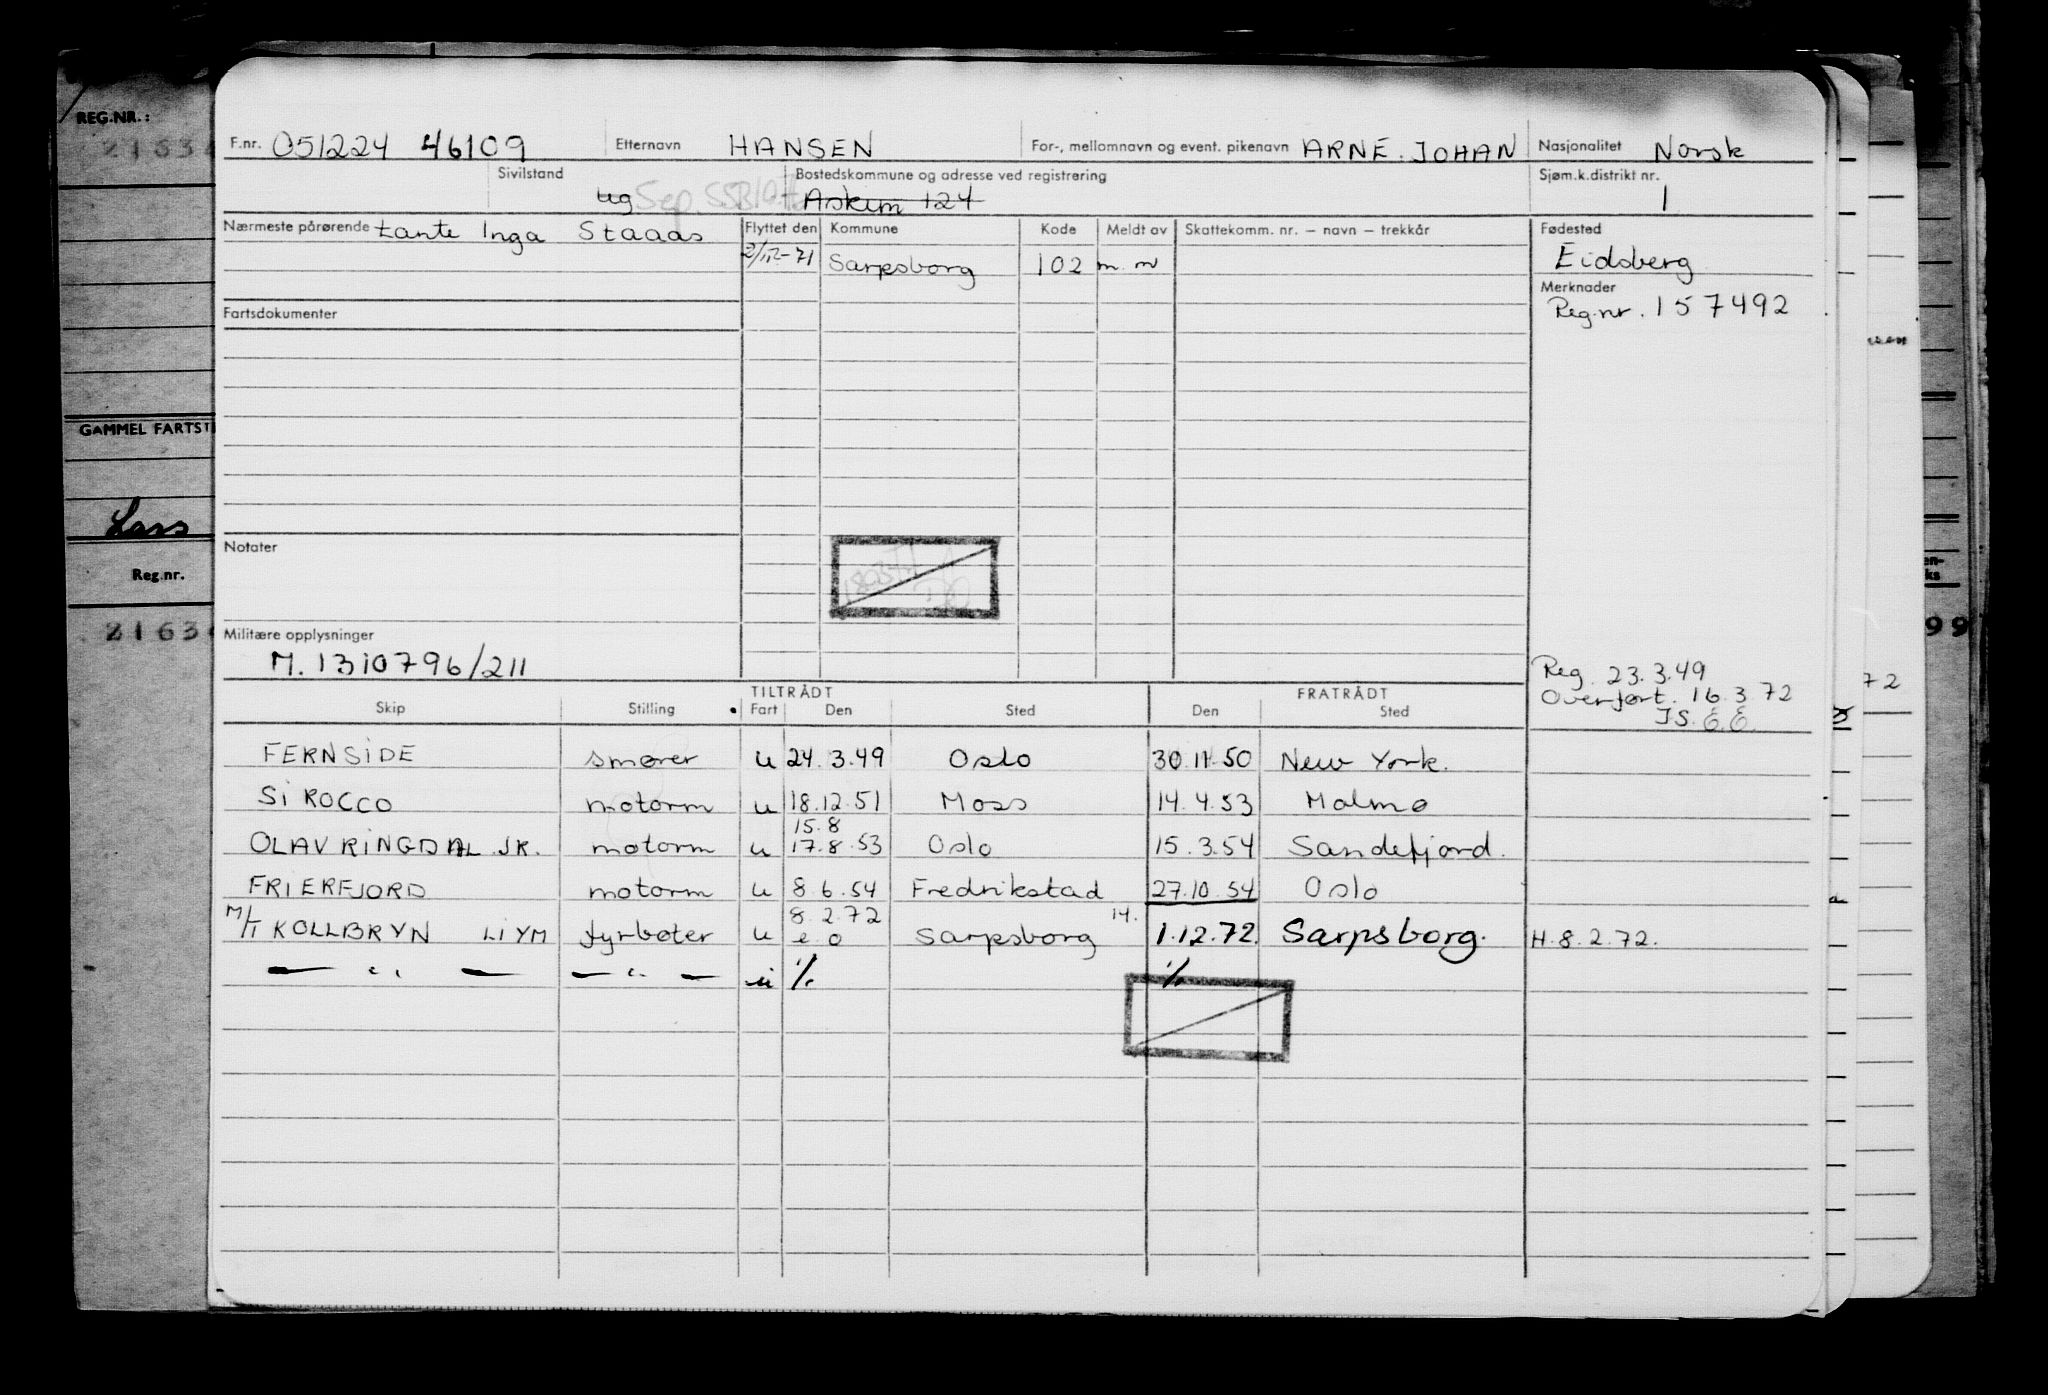 REG.NR.:
F.nr. 051224 46109 Etternavn HANSEN For-, mellomnavn og event. pikenavn ARNE. JOHAN Nasjonalitet Norsk
Sivilstand ug Sep. Bostedskommune og adresse ved registrering Askim 124 Sjøm.k.distrikt nr. 1
Nærmeste pårørende tante Inga Staaas Flyttet den Kommune Kode Meldt av Skattekomm. nr. – navn – trekkår Fødested
Sarpsborg 102 Eidsberg
Merknader
Reg.nr. 157492
Fartsdokumenter
GAMMEL FARTST
Lars
Notater
Reg.nr.
2163
Militære opplysninger
M. 1310796/211
Reg. 23.3.49
Overført. 16.3.72
TILTRÅDT FRATRÅDT
Skip Stilling Fart Den Sted Den Sted
FERNSIDE smører u 24.3.49 Oslo 30.11.50 New York.
SIROCCO motorm u 18.12.51 Moss 14.4.53 Malmø
15.8
OLAV RINGDAL JR. motorm u 17.8.53 Oslo 15.3.54 Sandefjord.
FRIERFJORD motorm u 8.6.54 Fredrikstad 27.10.54 Oslo
8.2.72 14.
M/T KOLLBRYN LIYM fyrbøter u e.o Sarpsborg 1.12.72. Sarpsborg. H.8.2.72.
— " — — " — u ./. ./.